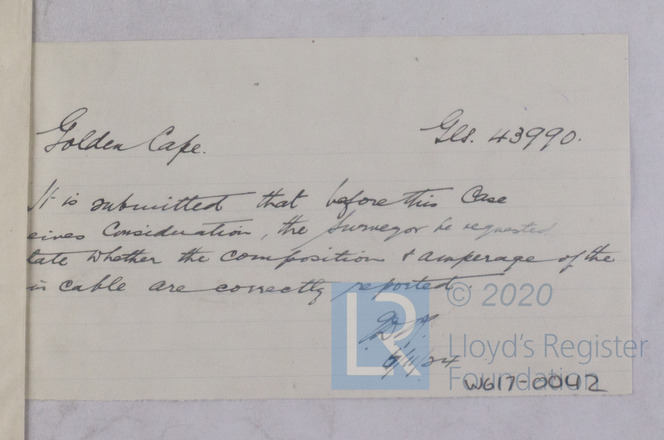 Golden Cape. Gls. 43990.
It is submitted that before this Case
eives Consideration, the Surveyor be requested
tate whether the composition & amperage of the
in cable are correctly reported.
6/11/24
© 2020
LR
Lloyd's Register
Foundation
W617-0042